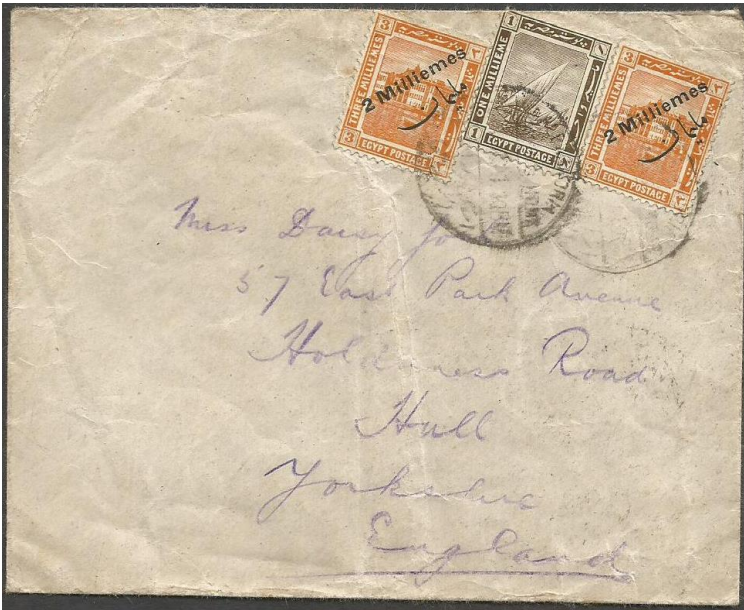 THREE MILLIEMES
2 Milliemes
EGYPT POSTAGE
3 3
1
ONE MILLIEME
1
EGYPT POSTAGE
3
THREE MILLIEMES
2 Milliemes
3
EGYPT POSTAGE
Miss Daisy
57 East Park Avenue
Holderness Road
Hull
Yorkshire
England